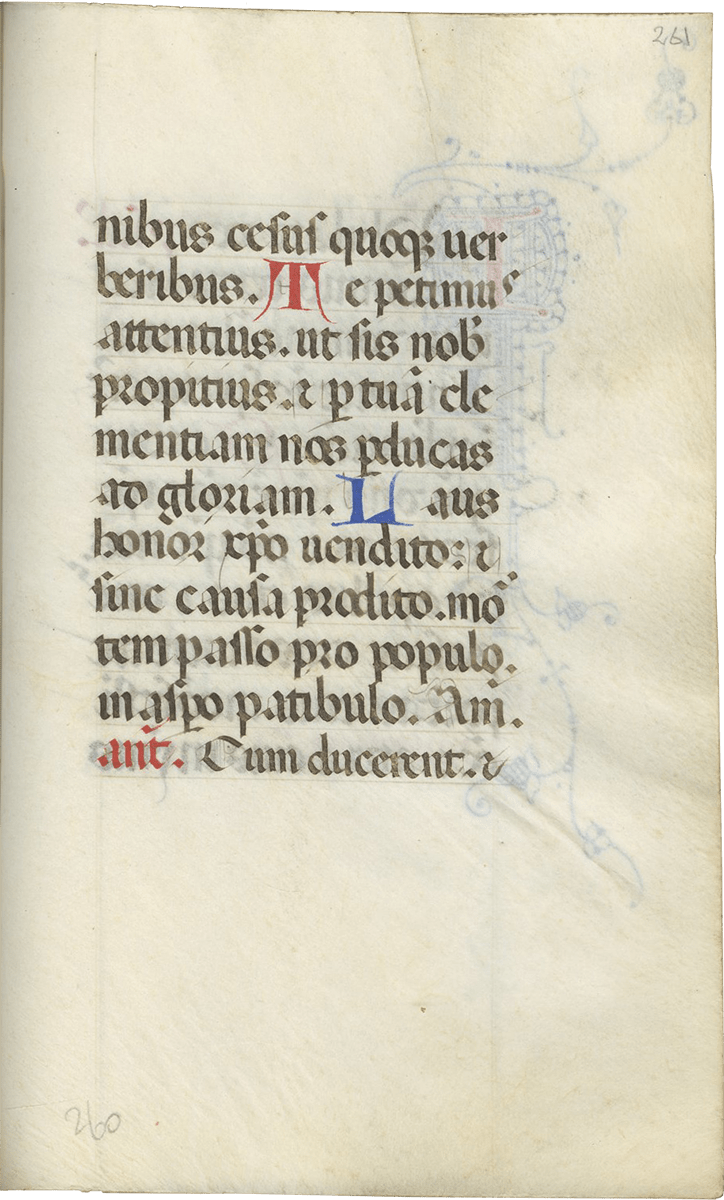 261
nibus cesus quoqꝫ uer
beribus. Te petimus
attentius. ut sis nob̃
propitius. ⁊ ꝑ tuã cle
mentiam nos ꝑducas
ad gloriam. Laus
honor xp̃o uendito: ⁊
sine causa prodito. mõ
tem passo pro populo.
in aspo patibulo. Am̃.
añt. Cum ducerent. ⁊
260